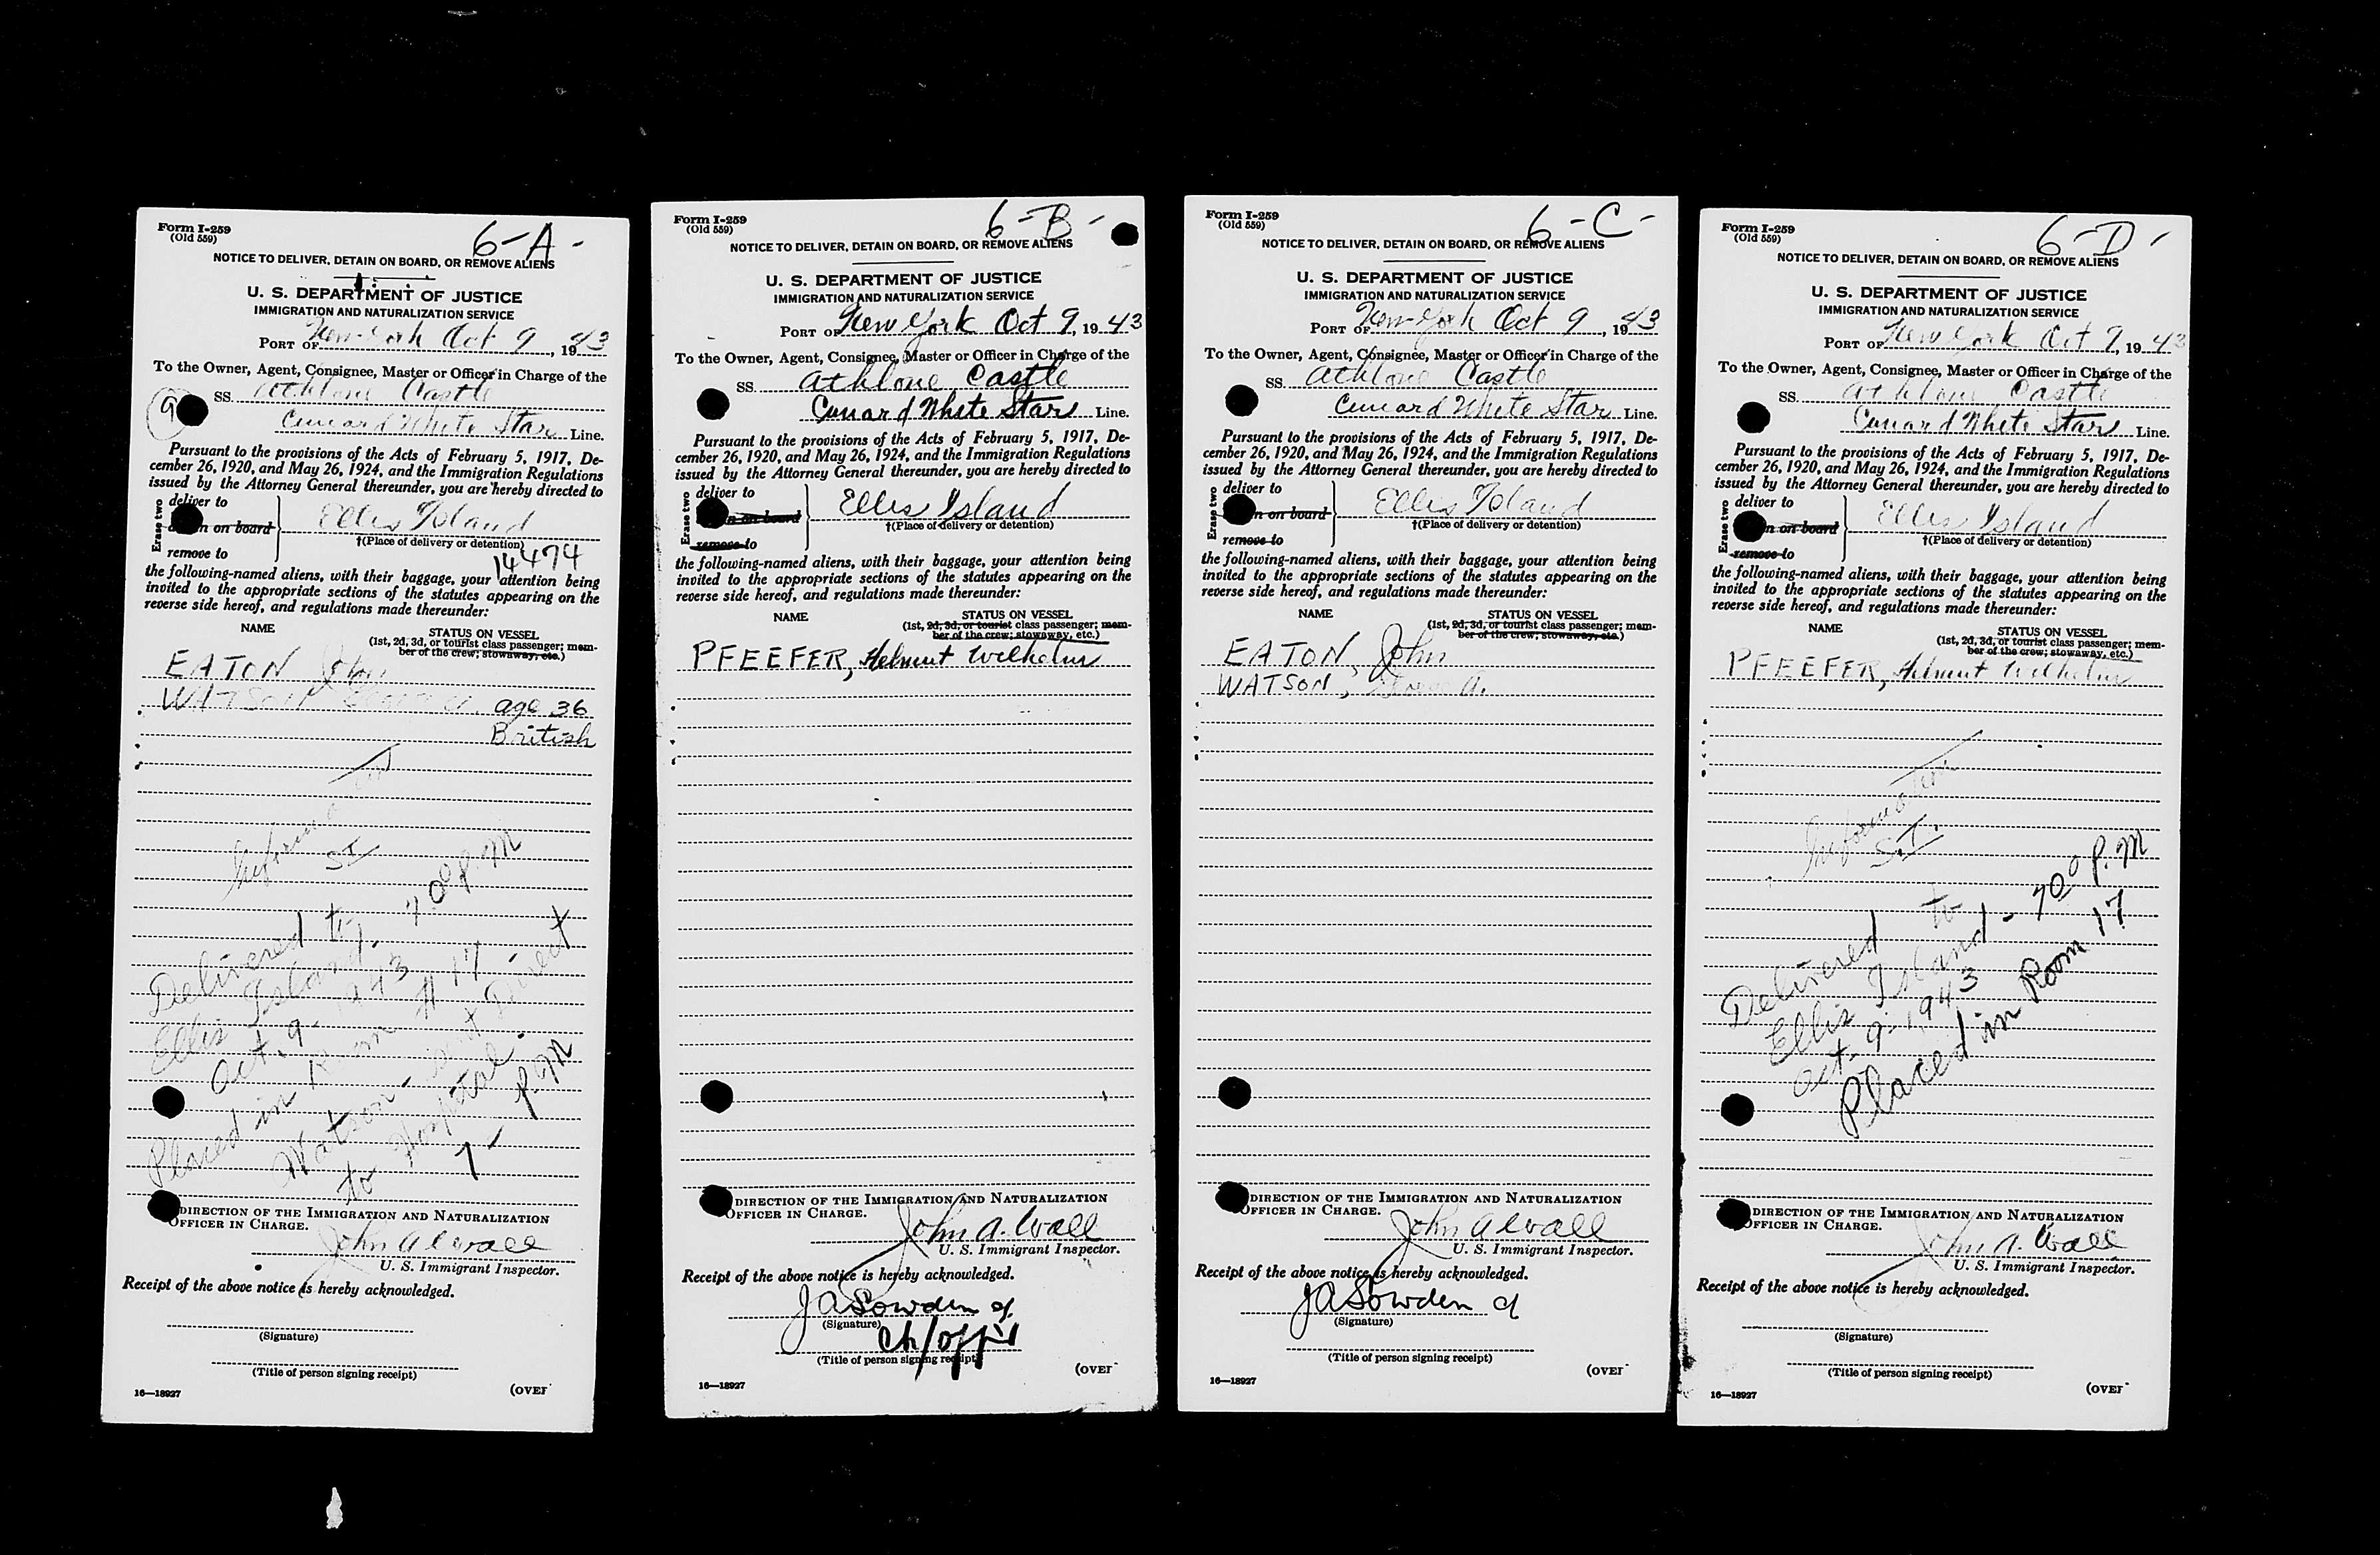 Form I-259
(Old 559)
6-A-
NOTICE TO DELIVER, DETAIN ON BOARD, OR REMOVE ALIENS
U. S. DEPARTMENT OF JUSTICE
IMMIGRATION AND NATURALIZATION SERVICE
PORT OF New York Oct 9, 1943
To the Owner, Agent, Consignee, Master or Officer in Charge of the
9
SS. Athlone Castle
Cunard White Star Line.
Pursuant to the provisions of the Acts of February 5, 1917, De-
cember 26, 1920, and May 26, 1924, and the Immigration Regulations
issued by the Attorney General thereunder, you are hereby directed to
Erase two
deliver to
n on board
remove to
Ellis Island
†(Place of delivery or detention)
14474
the following-named aliens, with their baggage, your attention being
invited to the appropriate sections of the statutes appearing on the
reverse side hereof, and regulations made thereunder:
NAME
STATUS ON VESSEL
(1st, 2d, 3d, or tourist class passenger; mem-
ber of the crew; stowaway, etc.)
EATON John
WATSON A. age 36
British
S.I.
Delivered to
Ellis Island. 7.00 P.M
Oct. 9- 1943
Placed in Room # 17
Watson - sent direct
to Hospital.
7- P.M
DIRECTION OF THE IMMIGRATION AND NATURALIZATION
OFFICER IN CHARGE.
John A Wall
U. S. Immigrant Inspector.
Receipt of the above notice is hereby acknowledged.
(Signature)
(Title of person signing receipt)
16—18927
(OVER
Form I-259
(Old 559)
6-B-
NOTICE TO DELIVER, DETAIN ON BOARD, OR REMOVE ALIENS
U. S. DEPARTMENT OF JUSTICE
IMMIGRATION AND NATURALIZATION SERVICE
PORT OF New York Oct 9, 1943
To the Owner, Agent, Consignee, Master or Officer in Charge of the
SS. Athlone Castle
Cunard White Star Line.
Pursuant to the provisions of the Acts of February 5, 1917, De-
cember 26, 1920, and May 26, 1924, and the Immigration Regulations
issued by the Attorney General thereunder, you are hereby directed to
Erase two
deliver to
n on board
remove to
Ellis Island
†(Place of delivery or detention)
the following-named aliens, with their baggage, your attention being
invited to the appropriate sections of the statutes appearing on the
reverse side hereof, and regulations made thereunder:
NAME
STATUS ON VESSEL
(1st, 2d, 3d, or tourist class passenger; mem-
ber of the crew; stowaway, etc.)
PFEEFER, Helmut Wilhelm
DIRECTION OF THE IMMIGRATION AND NATURALIZATION
OFFICER IN CHARGE.
John A. Wall
U. S. Immigrant Inspector.
Receipt of the above notice is hereby acknowledged.
JASowden
(Signature)
ch/off
(Title of person signing receipt)
16—18927
(OVER
Form I-259
(Old 559)
6-C-
NOTICE TO DELIVER, DETAIN ON BOARD, OR REMOVE ALIENS
U. S. DEPARTMENT OF JUSTICE
IMMIGRATION AND NATURALIZATION SERVICE
PORT OF New York Oct 9, 1943
To the Owner, Agent, Consignee, Master or Officer in Charge of the
SS. Athlone Castle
Cunard White Star Line.
Pursuant to the provisions of the Acts of February 5, 1917, De-
cember 26, 1920, and May 26, 1924, and the Immigration Regulations
issued by the Attorney General thereunder, you are hereby directed to
Erase two
deliver to
n on board
remove to
Ellis Island
†(Place of delivery or detention)
the following-named aliens, with their baggage, your attention being
invited to the appropriate sections of the statutes appearing on the
reverse side hereof, and regulations made thereunder:
NAME
STATUS ON VESSEL
(1st, 2d, 3d, or tourist class passenger; mem-
ber of the crew; stowaway, etc.)
EATON, John
WATSON, A.
DIRECTION OF THE IMMIGRATION AND NATURALIZATION
OFFICER IN CHARGE.
John A Wall
U. S. Immigrant Inspector.
Receipt of the above notice is hereby acknowledged.
JASowden
(Signature)
(Title of person signing receipt)
16—18927
(OVER
Form I-259
(Old 559)
6-D-
NOTICE TO DELIVER, DETAIN ON BOARD, OR REMOVE ALIENS
U. S. DEPARTMENT OF JUSTICE
IMMIGRATION AND NATURALIZATION SERVICE
PORT OF New York Oct 9, 1943
To the Owner, Agent, Consignee, Master or Officer in Charge of the
SS. Athlone Castle
Cunard White Star Line.
Pursuant to the provisions of the Acts of February 5, 1917, De-
cember 26, 1920, and May 26, 1924, and the Immigration Regulations
issued by the Attorney General thereunder, you are hereby directed to
Erase two
deliver to
n on board
remove to
Ellis Island
†(Place of delivery or detention)
the following-named aliens, with their baggage, your attention being
invited to the appropriate sections of the statutes appearing on the
reverse side hereof, and regulations made thereunder:
NAME
STATUS ON VESSEL
(1st, 2d, 3d, or tourist class passenger; mem-
ber of the crew; stowaway, etc.)
PFEEFER, Helmut Wilhelm
Information
S.I.
Delivered to
Ellis Island - 7.00 P.M
Oct. 9-1943
Placed in Room 17
DIRECTION OF THE IMMIGRATION AND NATURALIZATION
OFFICER IN CHARGE.
John A. Wall
U. S. Immigrant Inspector.
Receipt of the above notice is hereby acknowledged.
(Signature)
(Title of person signing receipt)
16—18927
(OVER